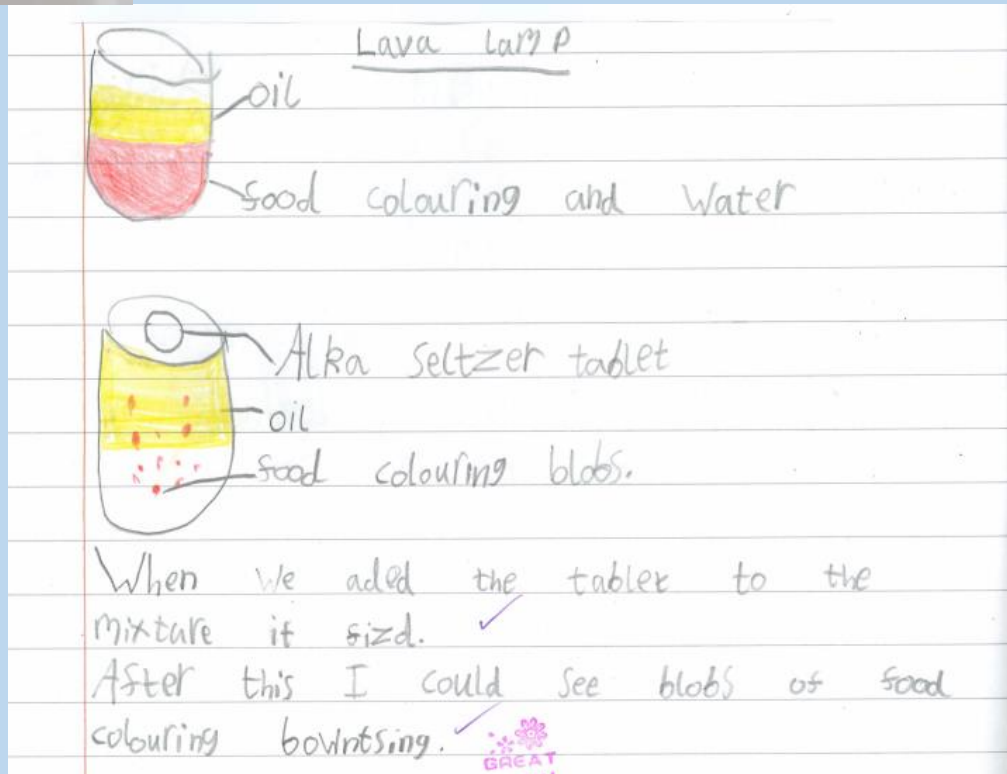 Lava Lamp
oil
food colouring and water
Alka Seltzer tablet
oil
food colouring blobs.
When we aded the tablet to the
mixture it fizd.
After this I could see blobs of food
colouring bowntsing.
GREAT